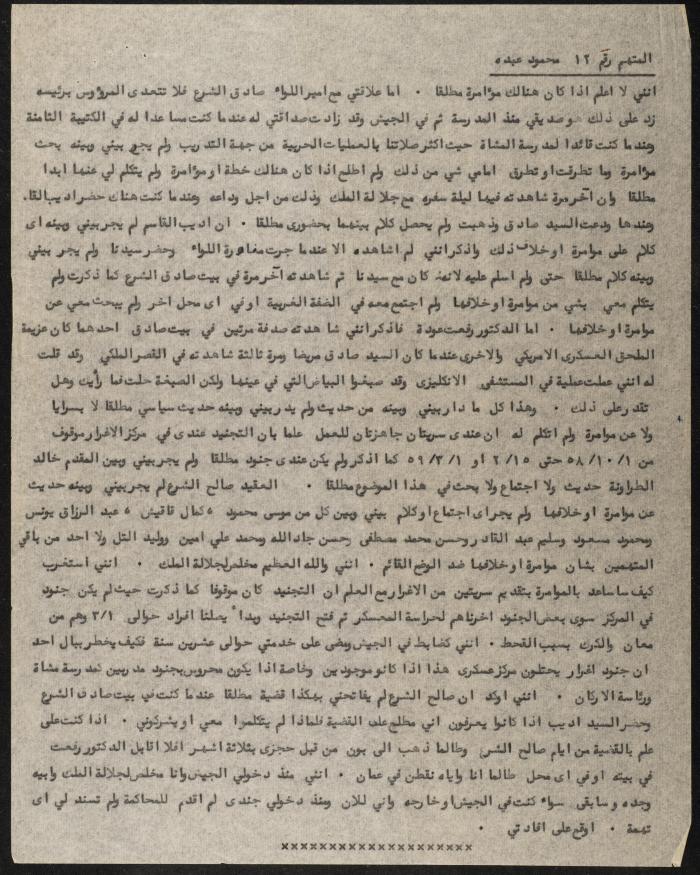 المتهم رقم ١٢ محمود عبده
انني لا اعلم اذا كان هنالك مؤامرة مطلقا . اما علاقتي مع امير اللواء صادق الشرع فلا تتعدى المرؤوس برئيسه
زد على ذلك هو صديقي منذ المدرسة ثم في الجيش وقد زادت صداقتي له عندما كنت مساعدا له في الكتيبة الثامنة
وعندما كنت قائدا لمدرسة المشاة حيث اكثر صلاتنا بالعمليات الحربية من جهة التدريب ولم يجر بيني وبينه بحث
مؤامرة وما تطرقت او تطرق امامي شي من ذلك ولم اطلع اذا كان هنالك خطة او مؤامرة ولم يتكلم لي عنها ابدا
مطلقا وان آخر مرة شاهدته فيها ليلة سفره مع جلالة الملك وذلك من اجل وداعه وعندما كنت هناك حضر اديب القا.
وعندها ودعت السيد صادق وذهبت ولم يحصل كلام بينهما بحضوري مطلقا . ان اديب القاسم لم يجر بيني وبينه اى
كلام على موامرة او خلاف ذلك واذكر انني لم اشاهده الا عندما جرت مغادرة اللواء وحضر سيدنا ولم يجر بيني
وبينه كلام مطلقا حتى ولم اسلم عليه لانه كان مع سيدنا ثم شاهدته آخر مرة في بيت صادق الشرع كما ذكرت ولم
يتكلم معي بشي من موامرة او خلافها ولم اجتمع معه في الضفة الغربية او في اى محل اخر ولم يبحث معي عن
موامرة او خلافها . اما الدكتور رفعت عودة فاذكر انني شاهدته صدفة مرتين في بيت صادق احدهما كان عزيمة
الملحق العسكرى الامريكي والاخرى عندما كان السيد صادق مريضا ومرة ثالثة شاهدته في القصر الملكي وقد قلت
له انني عملت عملية في المستشفى الانكليزى وقد صبغوا البياض التي في عينها ولكن الصبغة حلت فما رأيك وهل
تقدر على ذلك . وهذا كل ما دار بيني وبينه من حديث ولم يدر بيني وبينه حديث سياسي مطلقا لا بسرايا
ولا عن موامرة ولم اتكلم له ان عندى سريتان جاهزتان للعمل علما بان التجنيد عندى في مركز الاغرار موقوف
من ٥٨/١٠/١ حتى ٢/١٥ او ٥٩/٣/١ كما اذكر ولم يكن عندى جنود مطلقا ولم يجر بيني وبين المقدم خالد
الطراونة حديث ولا اجتماع ولا بحث في هذا الموضوع مطلقا . العقيد صالح الشرع لم يجر بيني وبينه حديث
عن موامرة او خلافها ولم يجر اى اجتماع او كلام بيني وبين كل من موسى محمود ، كمال تاقيش ، عبد الرزاق يونس
ومحمود مسعود وسليم عبد القادر وحسن محمد مصطفى وحسن جاد الله ومحمد علي امين ووليد التل ولا احد من باقي
المتهمين بشان موامرة او خلافها ضد الوضع القائم . انني والله العظيم مخلص لجلالة الملك . انني استغرب
كيف ساساعد بالموامرة بتقديم سريتين من الاغرار مع العلم ان التجنيد كان موقوفا كما ذكرت حيث لم يكن جنود
في المركز سوى بعض الجنود اخرناهم لحراسة المعسكر ثم فتح التجنيد وبدأ يصلنا افراد حوالى ٣/١ وهم من
معان والكرك بسبب القحط . انني كضابط في الجيش ومضى على خدمتي حوالى عشرين سنة فكيف يخطر ببال احد
ان جنود اغرار يحتلون مركز عسكرى هذا اذا كانو موجودين وخاصة اذا يكون محروس بجنود مدربين كمدرسة مشاة
ورئاسة الاركان . انني اوكد ان صالح الشرع لم يفاتحني بهكذا قضية مطلقا عندما كنت في بيت صادق الشرع
وحضر السيد اديب اذا كانوا يعرفون اني مطلع على القضية فلماذا لم يتكلموا معي او يشركوني . اذا كنت على
علم بالقضية من ايام صالح الشرع وطالما ذهب الى بون من قبل حجزى بثلاثة اشهر افلا اقابل الدكتور رفعت
في بيته او في اى محل طالما انا واياه نقطن في عمان . انني منذ دخولي الجيش وانا مخلص لجلالة الملك وابيه
وجده وسابقى سواء كنت في الجيش او خارجه واني للان ومنذ دخولي جندى لم اقدم للمحاكمة ولم تسند لي اى
تهمة . اوقع على افادتي .
xxxxxxxxxxxxxxxxxxxx